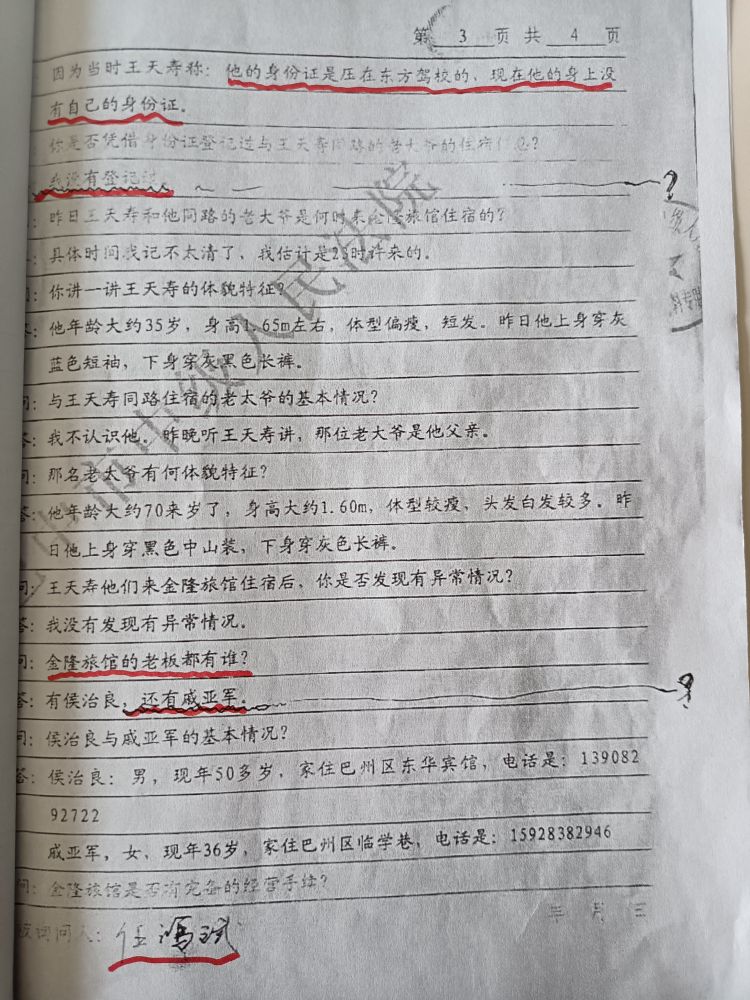 第 3 页 共 4 页
因为当时王天寿称：他的身份证是压在东方驾校的、现在他的身上没
有自己的身份证。
你是否凭借身份证登记过与王天寿同路的老大爷的住宿信息？
我没有登记过。
昨日王天寿和他同路的老大爷是何时来金隆旅馆住宿的？
具体时间我记不太清了，我估计是23时许来的。
你讲一讲王天寿的体貌特征？
他年龄大约35岁，身高1.65m左右，体型偏瘦，短发。昨日他上身穿灰
蓝色短袖，下身穿灰黑色长裤。
问：与王天寿同路住宿的老太爷的基本情况？
答：我不认识他。昨晚听王天寿讲，那位老大爷是他父亲。
问：那名老太爷有何体貌特征？
答：他年龄大约70来岁了，身高大约1.60m，体型较瘦，头发白发较多。昨
日他上身穿黑色中山装，下身穿灰色长裤。
问：王天寿他们来金隆旅馆住宿后，你是否发现有异常情况？
答：我没有发现有异常情况。
问：金隆旅馆的老板都有谁？
答：有侯治良，还有戚亚军。
问：侯治良与戚亚军的基本情况？
答：侯治良：男，现年50多岁，家住巴州区东华宾馆，电话是：139082
92722
戚亚军，女，现年36岁，家住巴州区临学巷，电话是：15928382946
问：金隆旅馆是否有完备的经营手续？
被询问人：任
年 月 三
中市中级人民法院